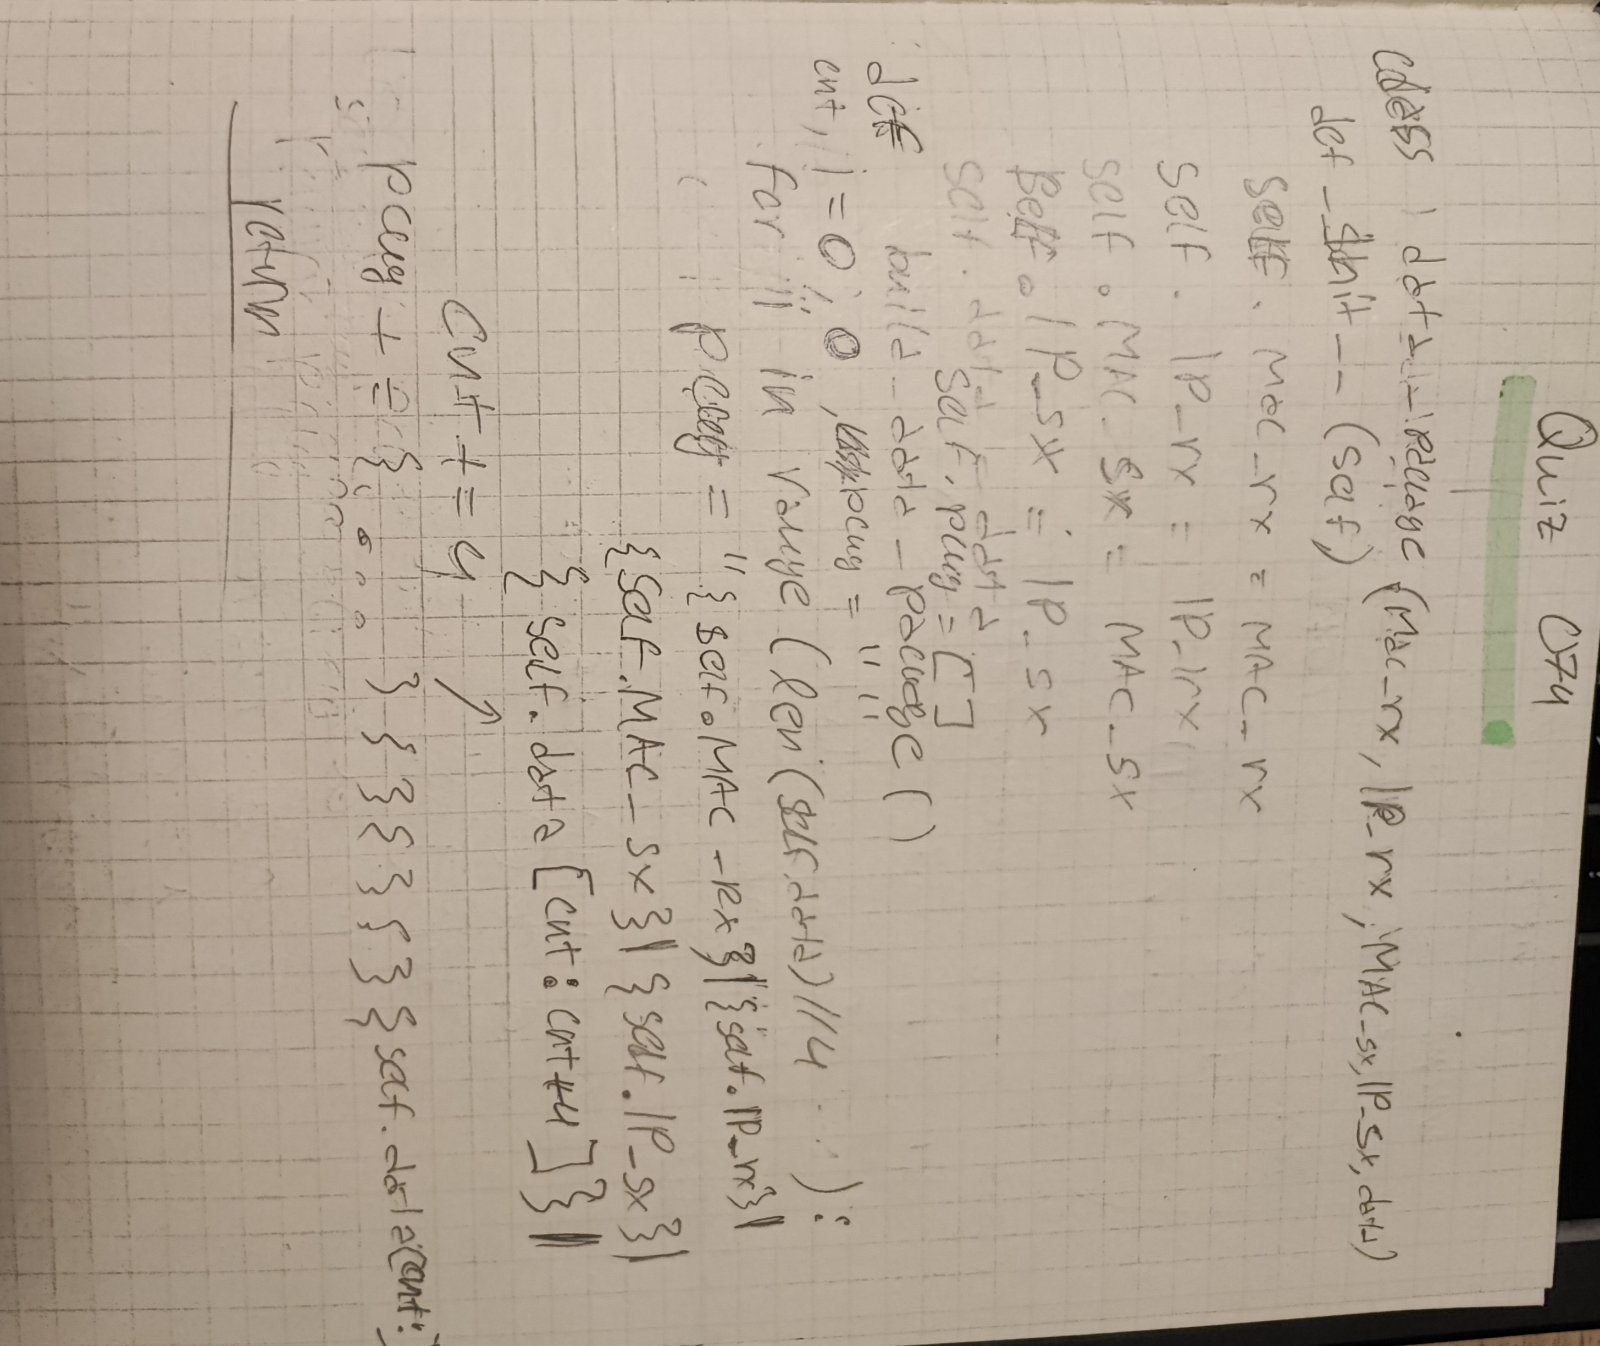 Quiz C74
class data_package (MAC_rx, IP_rx, MAC_sx, IP_sx, data)
def __init__ (self)
self. MAC_rx = MAC_rx
self. IP_rx = IP_rx
self. MAC_sx = MAC_sx
self. IP_sx = IP_sx
self. data = data
self. pckg = []
def build_data_package ()
cnt, i = 0, 0, pckg = ""
for i in range (len (self.data) // 4 ):
pckg = "{self.MAC_rx}|{self.IP_rx}|
{self.MAC_sx}|{self.IP_sx}|
{self.data[cnt:cnt+4]}||
cnt += 4
pckg += {...} {} {} {} {self.data(cnt:)
return